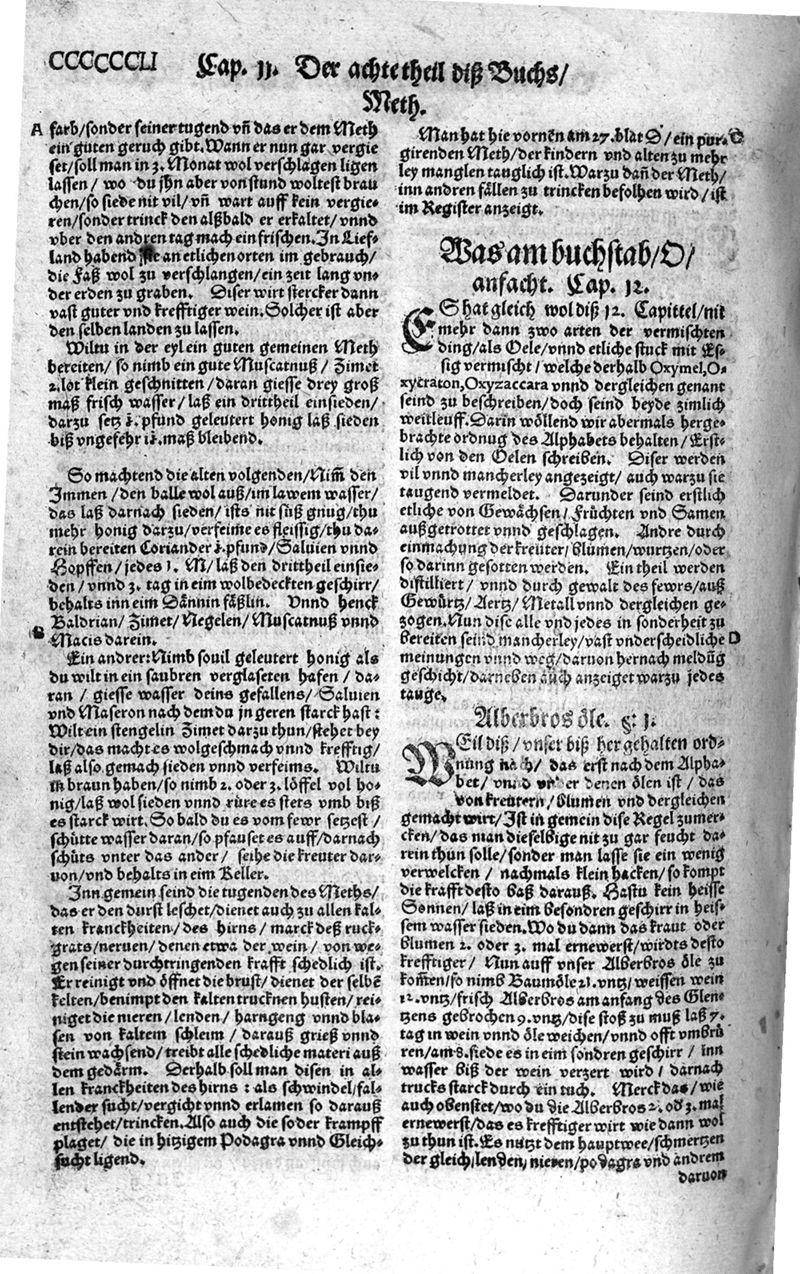 CCCCCCLI Cap. 11. Der achte theil diß Buchs/
Meth.
A farb/sonder seiner tugend vñ das er dem Meth
ein guten geruch gibt. Wann er nun gar vergie
set/soll man in 3. Monat wol verschlagen ligen
lassen / wo du jhn aber von stund woltest brau
chen/so siede nit vil/vñ wart auff kein vergie-
ren/sonder trinck den alßbald er erkaltet/vnnd
vber den andren tag mach ein frischen. In Lief-
land habend sie an etlichen orten im gebrauch/
die Faß wol zu verschlangen/ein zeit lang vn-
der erden zu graben. Diser wirt stercker dann
vast guter vnd krefftiger wein. Solcher ist aber
den selben landen zu lassen.
Wiltu in der eyl ein guten gemeinen Meth
bereiten/ so nimb ein gute Muscatnuß / Zimet
2. lot klein geschnitten/daran giesse drey groß
maß frisch wasser/ laß ein drittheil einsieden/
darzu setz 1. pfund geleutert honig laß sieden
biß vngefehr ii. maß bleibend.
So machtend die alten volgenden/Nim̃ den
Immen / den balle wol auß/im lawem wasser/
das laß darnach sieden / ists nit süß gnug/thu
mehr honig darzu/verfeime es fleissig/thu da-
rein bereiten Coriander 1. pfund/Saluien vnnd
Hopffen/jedes 1. M/ laß den drittheil einsie-
den/vnnd 3. tag in eim wolbedeckten geschirr/
behalts inn eim Dännin fäßlin. Vnnd henck
Baldrian/Zimet/Negelen/Muscatnuß vnnd
Macis darein.
Ein andrer: Nimb souil geleutert honig als
du wilt in ein saubren verglaseten hafen / da-
ran / giesse wasser deins gefallens/ Saluien
vnd Maseron nach dem du jn geren starck hast:
Wilt ein stengelin Zimet darzu thun/stehet bey
dir/das macht es wolgeschmach vnnd krefftig/
laß also gemach sieden vnnd verfeims. Wiltu
in braun haben/so nimb 2. oder 3. löffel vol ho-
nig/laß wol sieden vnnd rüre es stets vmb biß
es starck wirt. So bald du es vom fewr setzest /
schütte wasser daran/so pfauset es auff/darnach
schüts vnter das ander/ seihe die kreuter dar-
uon/vnd behalts in eim Keller.
Inn gemein seind die tugenden des Meths/
das er den durst leschet/dienet auch zu allen kal-
ten kranckheiten/des hirns/ marck deß ruck-
grats/neruen/denen etwa der wein / von we-
gen seiner durchtringenden krafft schedlich ist.
Er reinigt vnd öffnet die brust/dienet der selbẽ
kelten/benimpt den kalten trucknen husten/rei-
niget die nieren/lenden/harngeng vnnd bla-
sen von kaltem schleim / darauß grieß vnnd
stein wachsend/treibt alle schedliche materi auß
dem gedärm. Derhalb soll man disen in al-
len kranckheiten des hirns : als schwindel/fal-
lender sucht/vergicht vnnd erlamen so darauß
entstehet/trincken. Also auch die so der krampff
plaget/ die in hitzigem Podagra vnnd Gleich-
sucht ligend.
Man hat hie vornen am 27. blat D/ein pur-
girenden Meth/der kindern vnd alten zu mehr
ley manglen tauglich ist. Warzu dañ der Meth/
inn andren fällen zu trincken befolhen wird/ist
im Register anzeigt.
Was am buchstab/O/
anfacht. Cap. 12.
ES hat gleich wol diß 12. Capittel/nit
mehr dann zwo arten der vermischten
ding/als Oele/vnnd etliche stuck mit Es-
sig vermischt / welche derhalb Oxymel, O-
xycraton, Oxyzaccara vnnd dergleichen genant
seind zu beschreiben/doch seind beyde zimlich
weitleuff. Darin wöllend wir abermals herge-
brachte ordnug des Alphabets behalten / Erst-
lich von den Oelen schreiben. Diser werden
vil vnnd mancherley angezeigt/ auch warzu sie
taugend vermeldet. Darunder seind erstlich
etliche von Gewächsen/ Früchten vnd Samen
außgetrottet vnnd geschlagen. Andre durch
einmachung der kreuter/blumen/wurtzen/oder
so darinn gesotten werden. Ein theil werden
distilliert / vnnd durch gewalt des fewrs/auß
Gewürtz/Aertz/Metall vnnd dergleichen ge-
zogen. Nun dise alle vnd jedes in sonderheit zu
bereiten seind mancherley/vast vnderscheidliche D
meinungen vnnd weg/daruon hernach meldũg
geschicht/darneben auch anzeiget warzu jedes
tauge.
Alberbros öle. §: 1.
WEil diß/ vnser biß her gehalten ord-
nung nach/ das erst nach dem Alpha-
bet/ vnnd vnder denen ölen ist / das
von kreutern / blumen vnd dergleichen
gemacht wirt/ Ist in gemein dise Regel zumer-
cken/das man dieselbige nit zu gar feucht da-
rein thun solle/sonder man lasse sie ein wenig
verwelcken / nachmals klein hacken/so kompt
die krafft desto baß darauß. Hastu kein heisse
Sonnen/ laß in eim besondren geschirr in heis-
sem wasser sieden. Wo du dann das kraut oder
blumen 2. oder 3. mal ernewerst/wirdts desto
krefftiger / Nun auff vnser Alberbros öle zu
kom̃en/so nimb Baumöle 21. vntz/weissen wein
12. vntz/frisch Alberbros am anfang des Glen-
tzens gebrochen 9. vntz/dise stoß zu muß laß 7.
tag in wein vnnd öle weichen/vnnd offt vmbrü
ren/am 8. siede es in eim sondren geschirr / inn
wasser biß der wein verzert wird / darnach
trucks starck durch ein tuch. Merck das/ wie
auch oben stet/wo du die Alberbros 2. od̓ 3. mal
ernewerst/das es krefftiger wirt wie dann wol
zu thun ist. Es nützt dem hauptwee/schmertzen
der gleich/lenden/ nieren/podagra vnd andrem
daruon